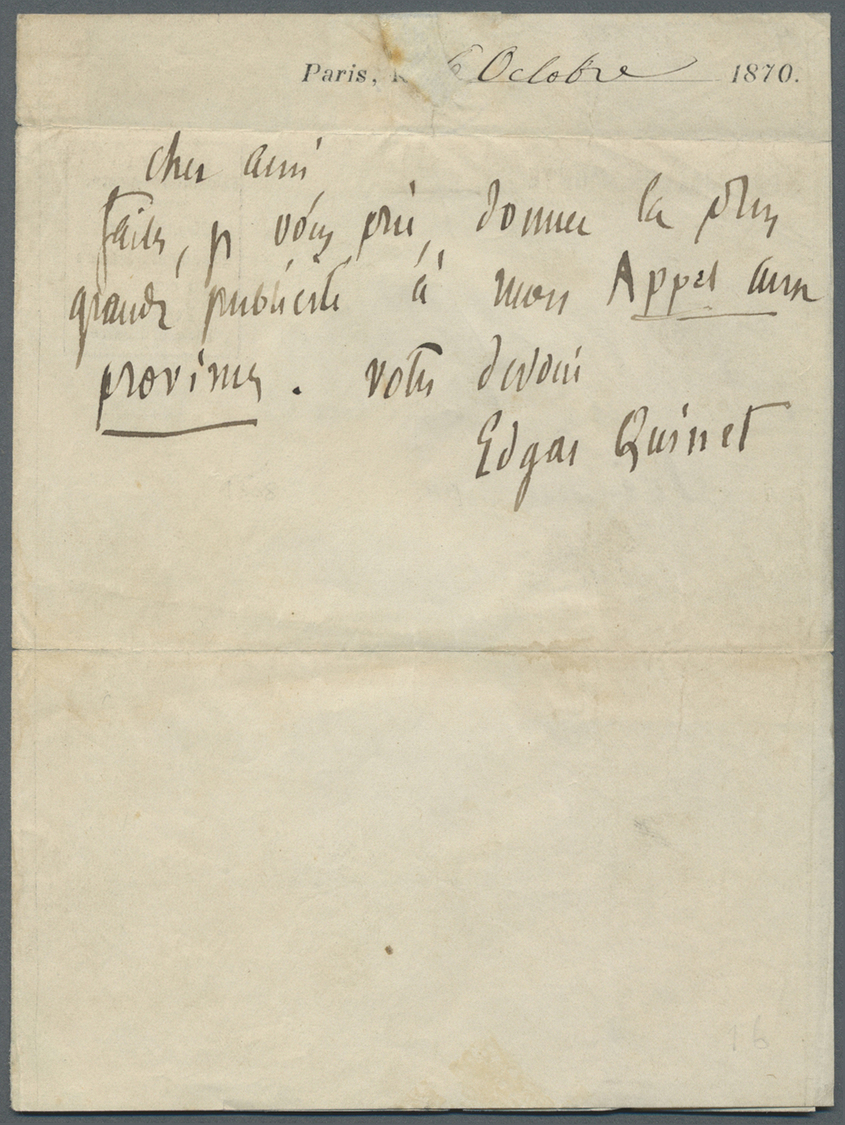 Paris, 6 Octobre 1870.
cher ami,
faites, je vous prie, donner la plus
grande publicité à mon Appel aux
provinces. votre dévoué
Edgar Quinet
16